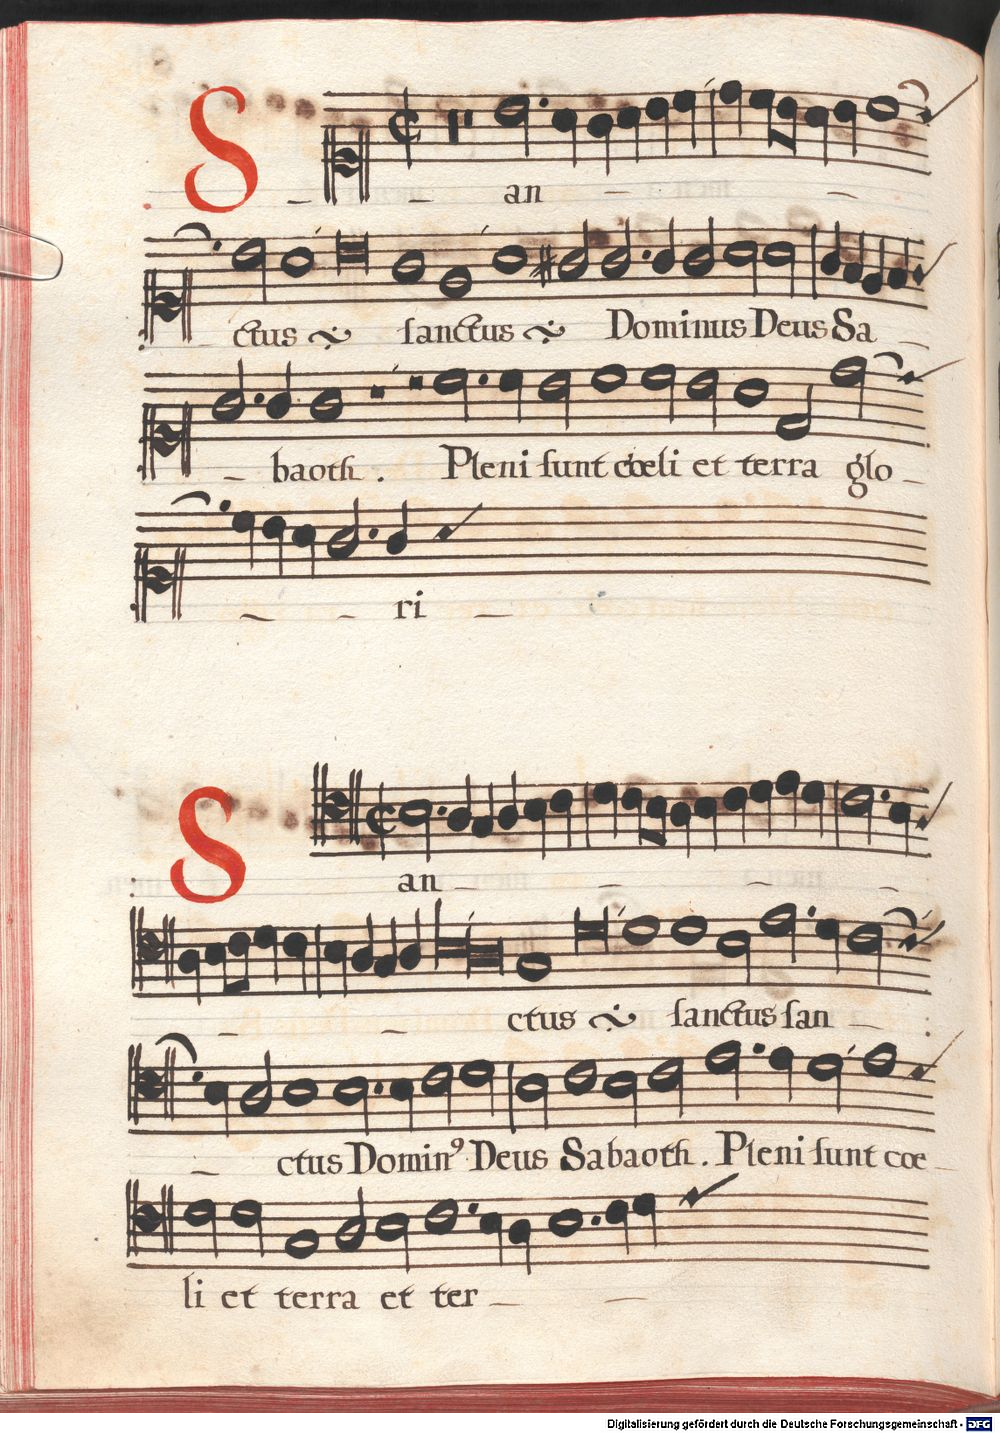 S an
ctus ·/· sanctus ·/· Dominus Deus Sa
baoth. Pleni sunt coeli et terra glo
ri
S an
ctus ·/· sanctus san
ctus Domin⁹ Deus Sabaoth. Pleni sunt coe
li et terra et ter
Digitalisierung gefördert durch die Deutsche Forschungsgemeinschaft - DFG